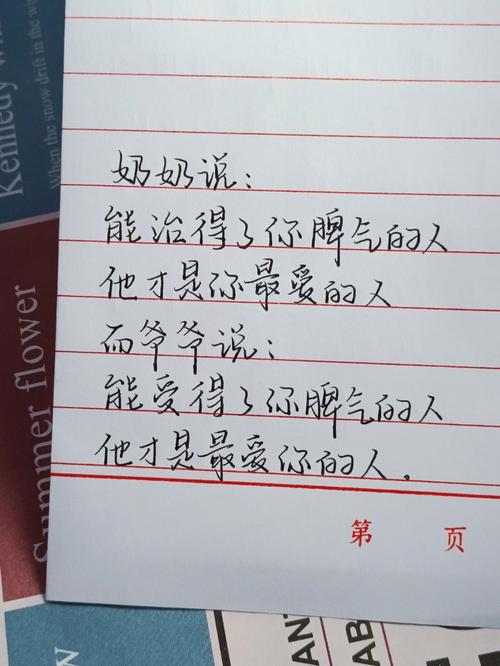 奶奶说：
能治得了你脾气的人
他才是你最爱的人
而爷爷说：
能受得了你脾气的人
他才是最爱你的人.
第 页
Kennedy
When the snow drift in the
Summer flower
ANT
ABO